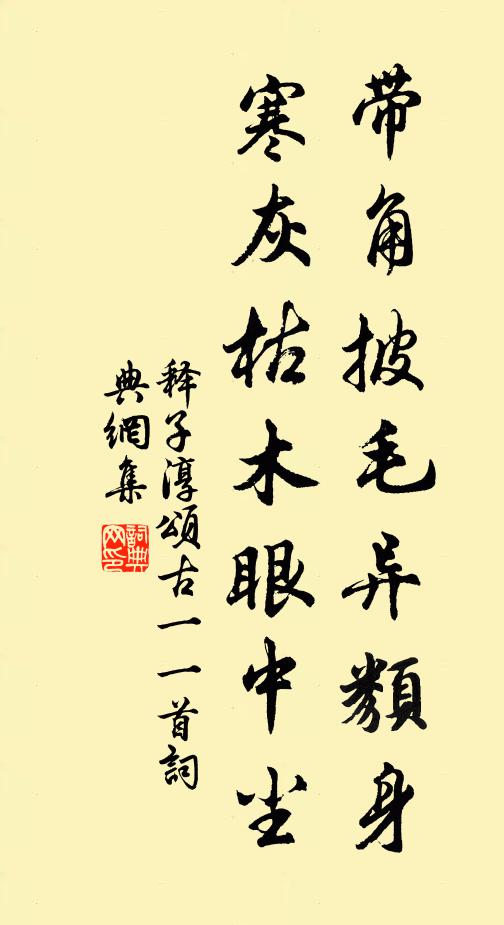 带角披毛异類身
寒灰枯木眼中尘
释子淳頌古一一首詞
典網集
詞典
网印